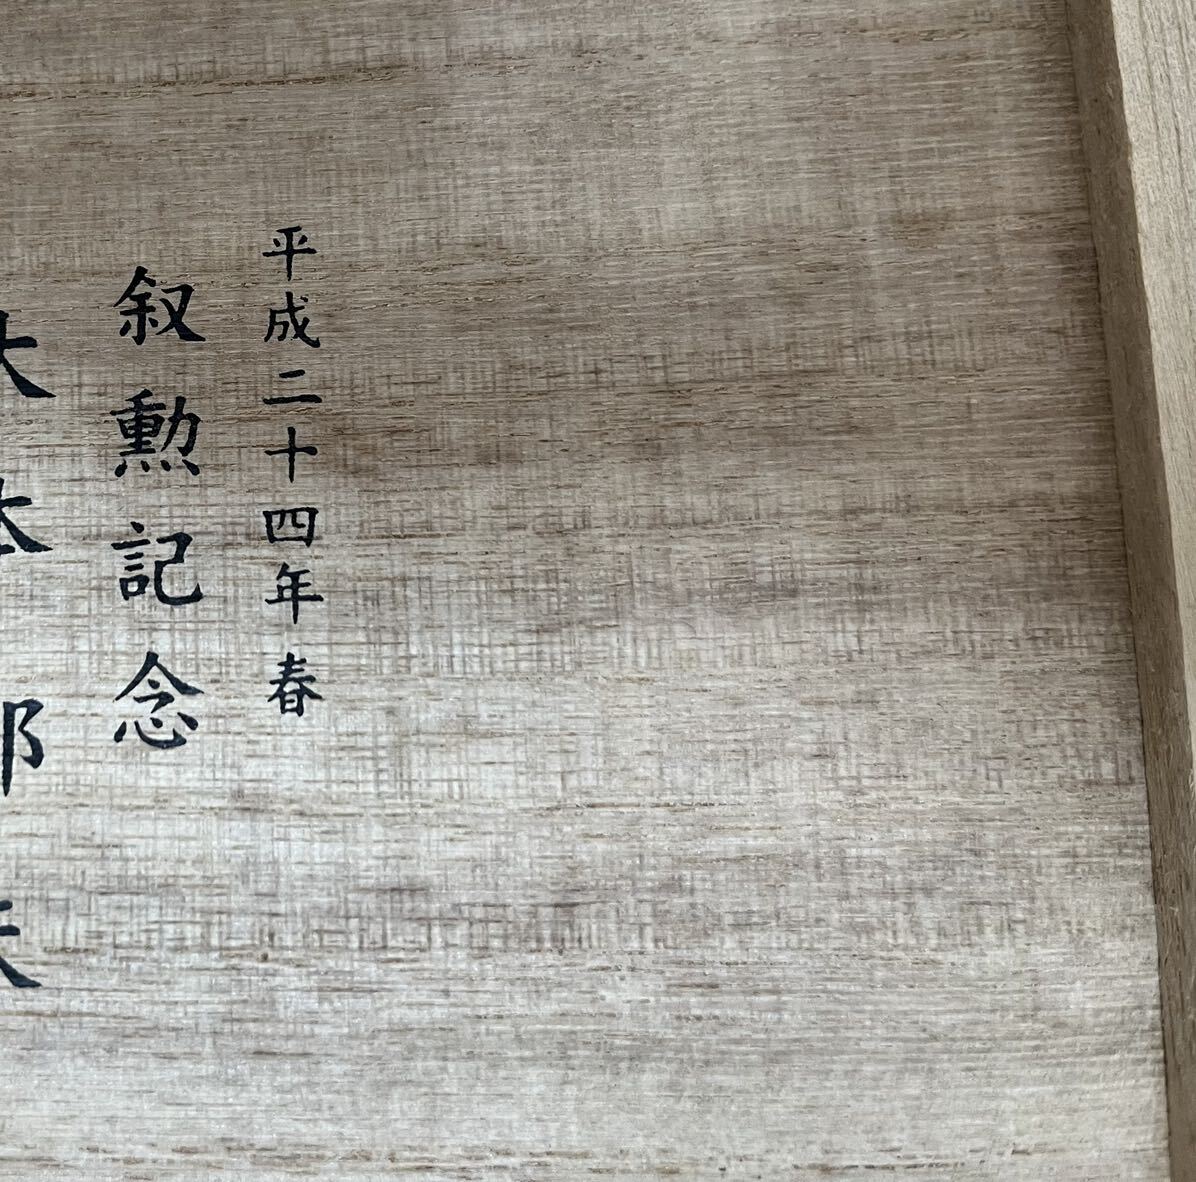 平成二十四年春
叙勲記念